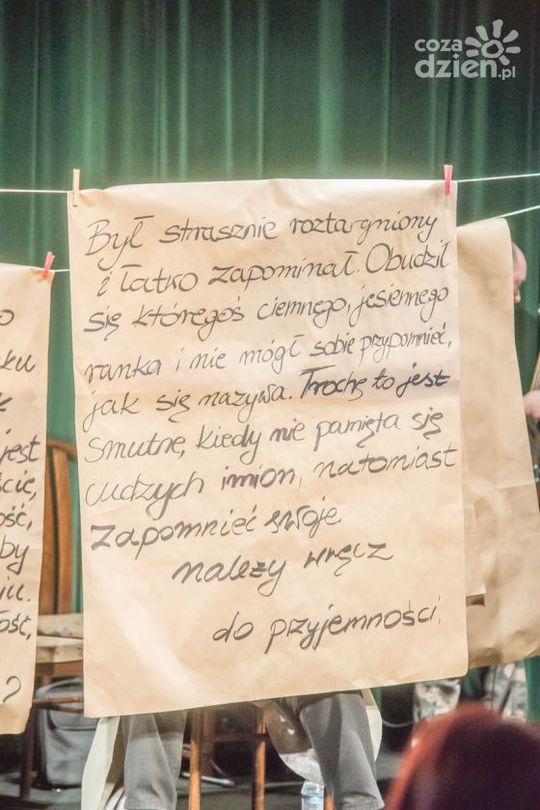 coza
dzien.pl
Był strasznie roztargniony
i łatko zapominał. Obudził
się któregoś ciemnego, jesiennego
ranka i nie mógł sobie przypomnieć,
jak się nazywa. Trochę to jest
smutne, kiedy nie pamięta się
cudzych imion, natomiast
zapomnieć swoje
należy wręcz
do przyjemności.
o
ku
jest
cie,
ość,
by
iu.
łość,
?